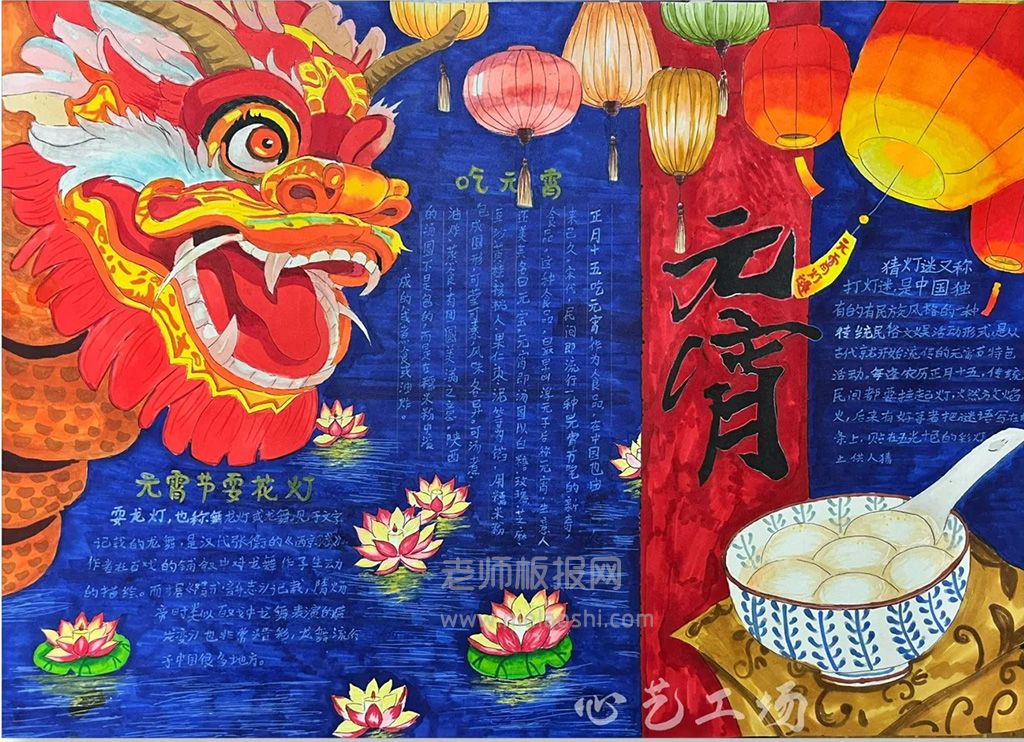 吃元宵
正月十五吃元宵作为食品，在中国也由
来已久，民间即流行一种元宵节吃的新奇
食品，这种食品
还美其名曰元宝，元宵即汤圆以白糖玫瑰芝麻
豆沙
核桃仁果仁枣泥等为馅，用糯米粉
包成圆形，可荤可素，风味各异。可汤煮
油炸，蒸食，有团圆美满之意。陕西
的汤圆不是包的，而是在糯米粉中
成的
元宵
元宵灯谜
猜灯迷又称
打灯迷，是中国独
有的有民族风格的一种
传统民俗文娱活动形式，是从
古代就开始流传的元宵节特色
活动，每逢农历正月十五，传统
民间都要挂起灯，燃放焰
火，后来有好事者把谜语写在纸
条上，贴在五光十色的彩灯
上供人猜
元宵节耍花灯
耍龙灯，也称舞龙灯或龙舞，见于文字
记载的龙舞，是汉代张衡的《西京赋》，
作者在百戏的铺叙中对龙舞作了生动
的描绘。而据《隋书》
记载，隋炀
帝时类似百戏中龙舞表演的
也非常精彩，龙舞流行
于中国很多地方。
老师板报网
心艺工场